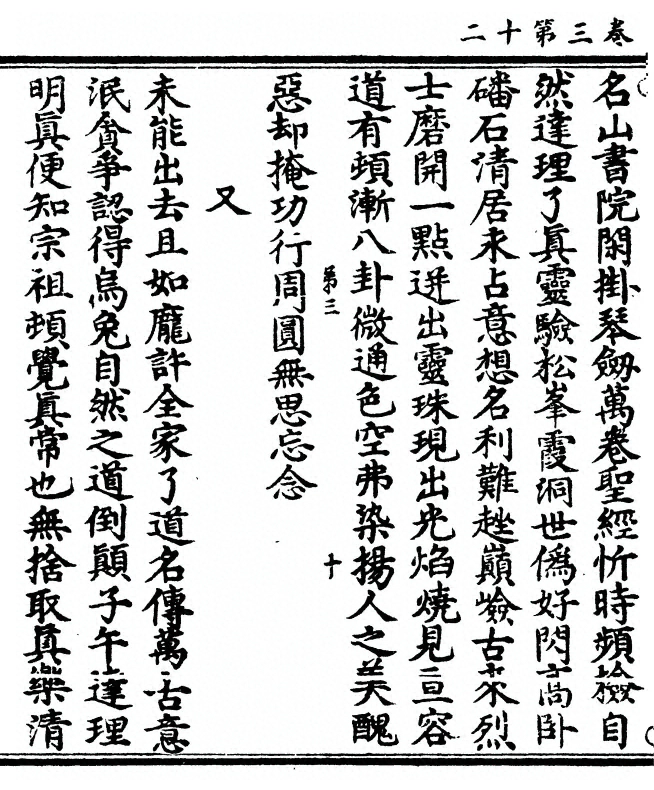 卷三第十二
名山書院閑掛琴劔萬卷聖經忻時頻撿自
然達理了眞靈驗松峯霞洞世僞好閃高卧
磻石清居未占意想名利難趖巔嶮古來烈
士磨開一點迸出靈珠現出光焰燒見亘容
道有頓漸八卦微通色空弗染揚人之美醜
第三 十
惡却掩功行周圓無思忘念
又
未能出去且如龐許全家了道名傳萬古意
泯貪爭認得烏兔自然之道倒顛子午達理
明眞便知宗祖頓覺眞常也無捨取眞樂清